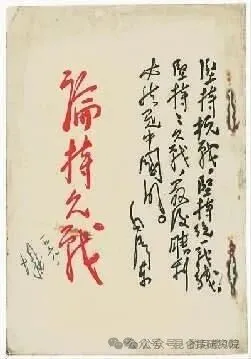 坚持抗战，坚持统一战线，
坚持持久战，最后胜利
必然是中国的。
毛泽东
論持久戰
公众号